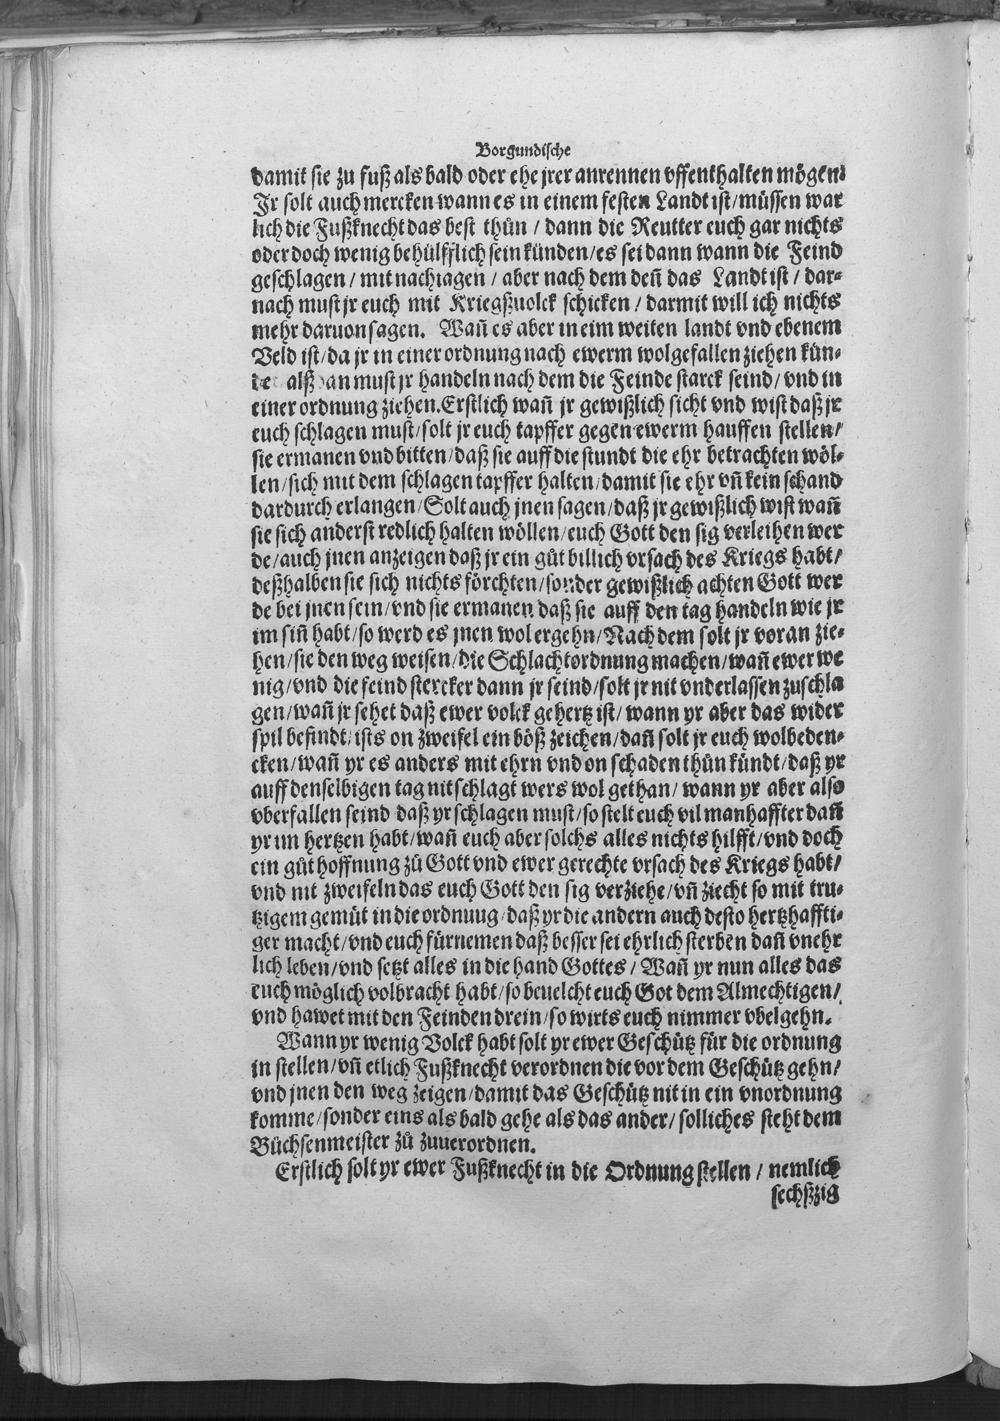 Borgundische
damit sie zu fuß als bald oder ehe jrer anrennen vffenthalten mögen.
Jr solt auch mercken wann es in einem festen Landt ist/ müssen war
lich die Fußknecht das best thůn / dann die Reutter euch gar nichts
oder doch wenig behülfflich sein künden/ es sei dann wann die Feind
geschlagen / mit nachiagen / aber nach dem deñ das Landt ist / dar-
nach must jr euch mit Kriegßuolck schicken / darmit will ich nichts
mehr daruon sagen. Wañ es aber in eim weiten landt vnd ebenem
Veld ist/ da jr in einer ordnung nach ewerm wolgefallen ziehen kün-
de alß an must jr handeln nach dem die Feinde starck seind/ vnd in
einer ordnung ziehen. Erstlich wañ jr gewißlich sicht vnd wist daß jr
euch schlagen must/ solt jr euch tapffer gegen ewerm hauffen stellen/
sie ermanen vnd bitten/ daß sie auff die stundt die ehr betrachten wöl-
len/ sich mit dem schlagen tapffer halten/ damit sie ehr vñ kein schand
dardurch erlangen/ Solt auch jnen sagen/ daß jr gewißlich wist wañ
sie sich anderst redlich halten wöllen/ euch Gott den sig verleihen wer
de/ auch jnen anzeigen daß jr ein gůt billich vrsach des Kriegs habt/
deßhalben sie sich nichts förchten/ sonder gewißlich achten Gott wer
de bei jnen sein/ vnd sie ermanen daß sie auff den tag handeln wie jr
im siñ habt/ so werd es jnen wol ergehn/ Nach dem solt jr voran zie-
hen/ sie den weg weisen/ die Schlachtordnung machen/ wañ ewer we
nig/ vnd die feind stercker dann jr seind/ solt jr nit vnderlassen zuschla
gen/ wañ jr sehet daß ewer volck gehertz ist/ wann yr aber das wider
spil befindt/ ists on zweifel ein böß zeichen/ dañ solt jr euch wolbeden-
cken/ wañ yr es anders mit ehrn vnd on schaden thůn kündt/ daß yr
auff denselbigen tag nit schlagt wers wol gethan/ wann yr aber also
vberfallen seind daß yr schlagen must/ so stelt euch vil manhaffter dañ
yr im hertzen habt/ wañ euch aber solchs alles nichts hilfft/ vnd doch
ein gůt hoffnung zů Gott vnd ewer gerechte vrsach des Kriegs habt/
vnd nit zweifeln das euch Gott den sig verziehe/ vñ ziecht so mit tru-
tzigem gemüt in die ordnuug/ daß yr die andern auch desto hertzhaffti-
ger macht/ vnd euch fürnemen daß besser sei ehrlich sterben dañ vnehr
lich leben/ vnd setzt alles in die hand Gottes / Wañ yr nun alles das
euch möglich volbracht habt/ so beuelcht euch Got dem Almechtigen/
vnd hawet mit den Feinden drein/ so wirts euch nimmer vbelgehn.
Wann yr wenig Volck habt solt yr ewer Geschütz für die ordnung
in stellen/ vñ etlich Fußknecht verordnen die vor dem Geschütz gehn/
vnd jnen den weg zeigen/ damit das Geschütz nit in ein vnordnung
komme/ sonder eins als bald gehe als das ander/ solliches steht dem
Büchsenmeister zů zuuerordnen.
Erstlich solt yr ewer Fußknecht in die Ordnung stellen / nemlich
sechßzig